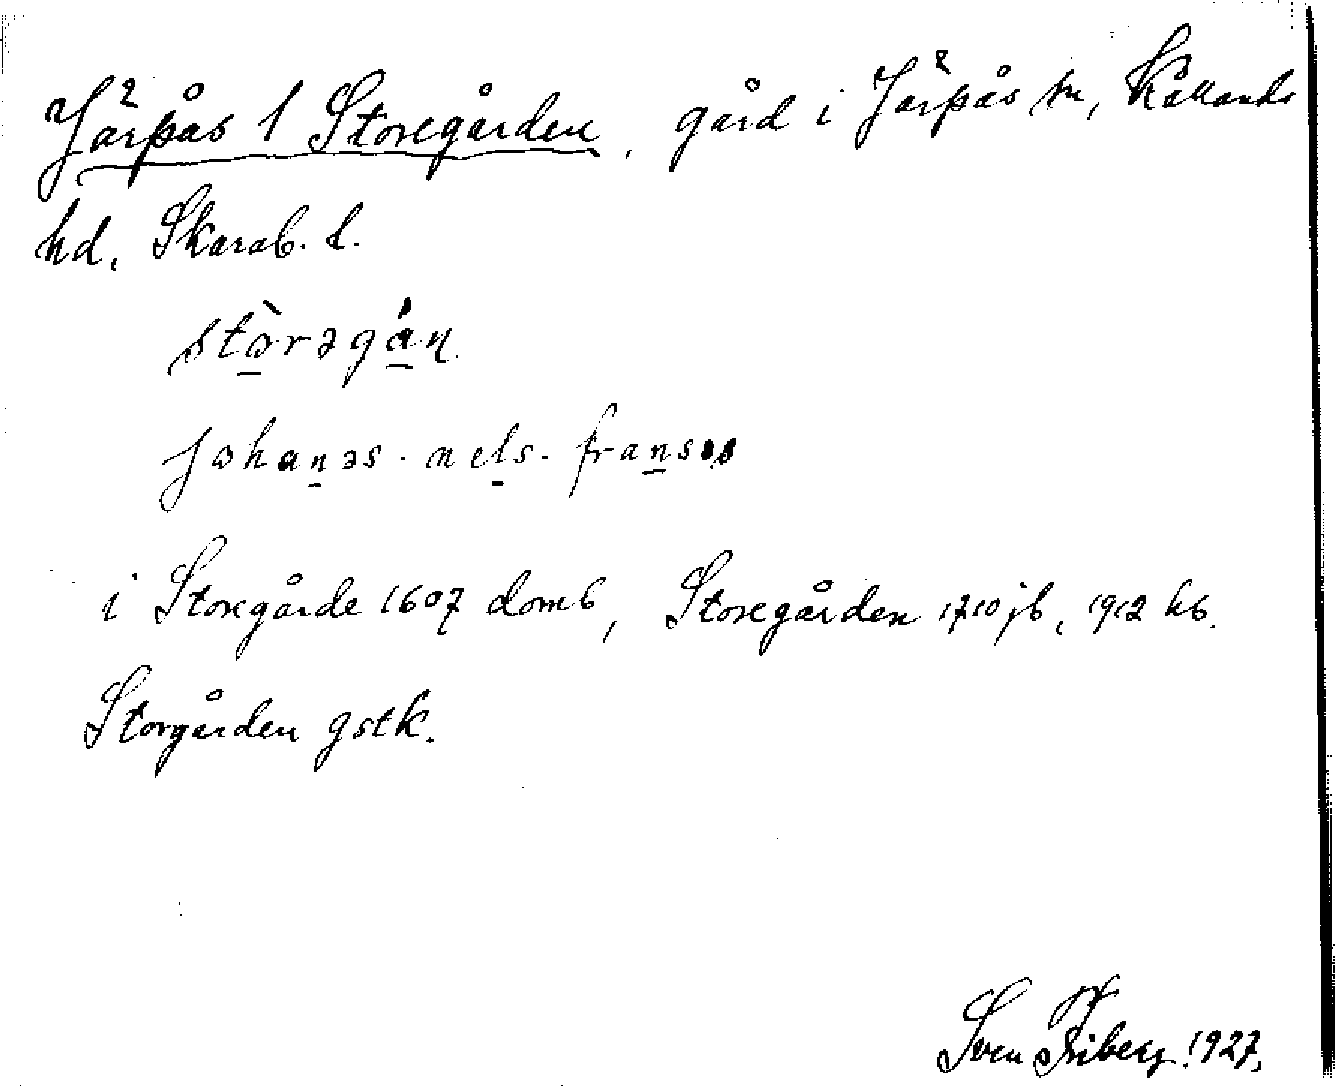 Järpås 1 Storegården, gård i Järpås sn, Kållands
hd, Skarab. l.
stòrəgán
johanəs. nels. frans
i Storegårde 1607 domb, Storegården 1710 jb, 1912 hb.
Storgården gstk.
Sven Friberg. 1927.